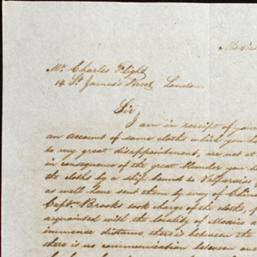 Mr. Charles Flight
14 St. James's Street London
Sir
I am in receipt of your
an account of some cloths which you ha
to my great disappointment, are not at
in consequence of the great blunder you ha
the cloths by a ship bound to Valparaiso
as well have sent them by way of China
Captn. Brooks took charge of the cloths,
acquainted with the locality of Mexico a
immense distance there is between the
there is no communication between